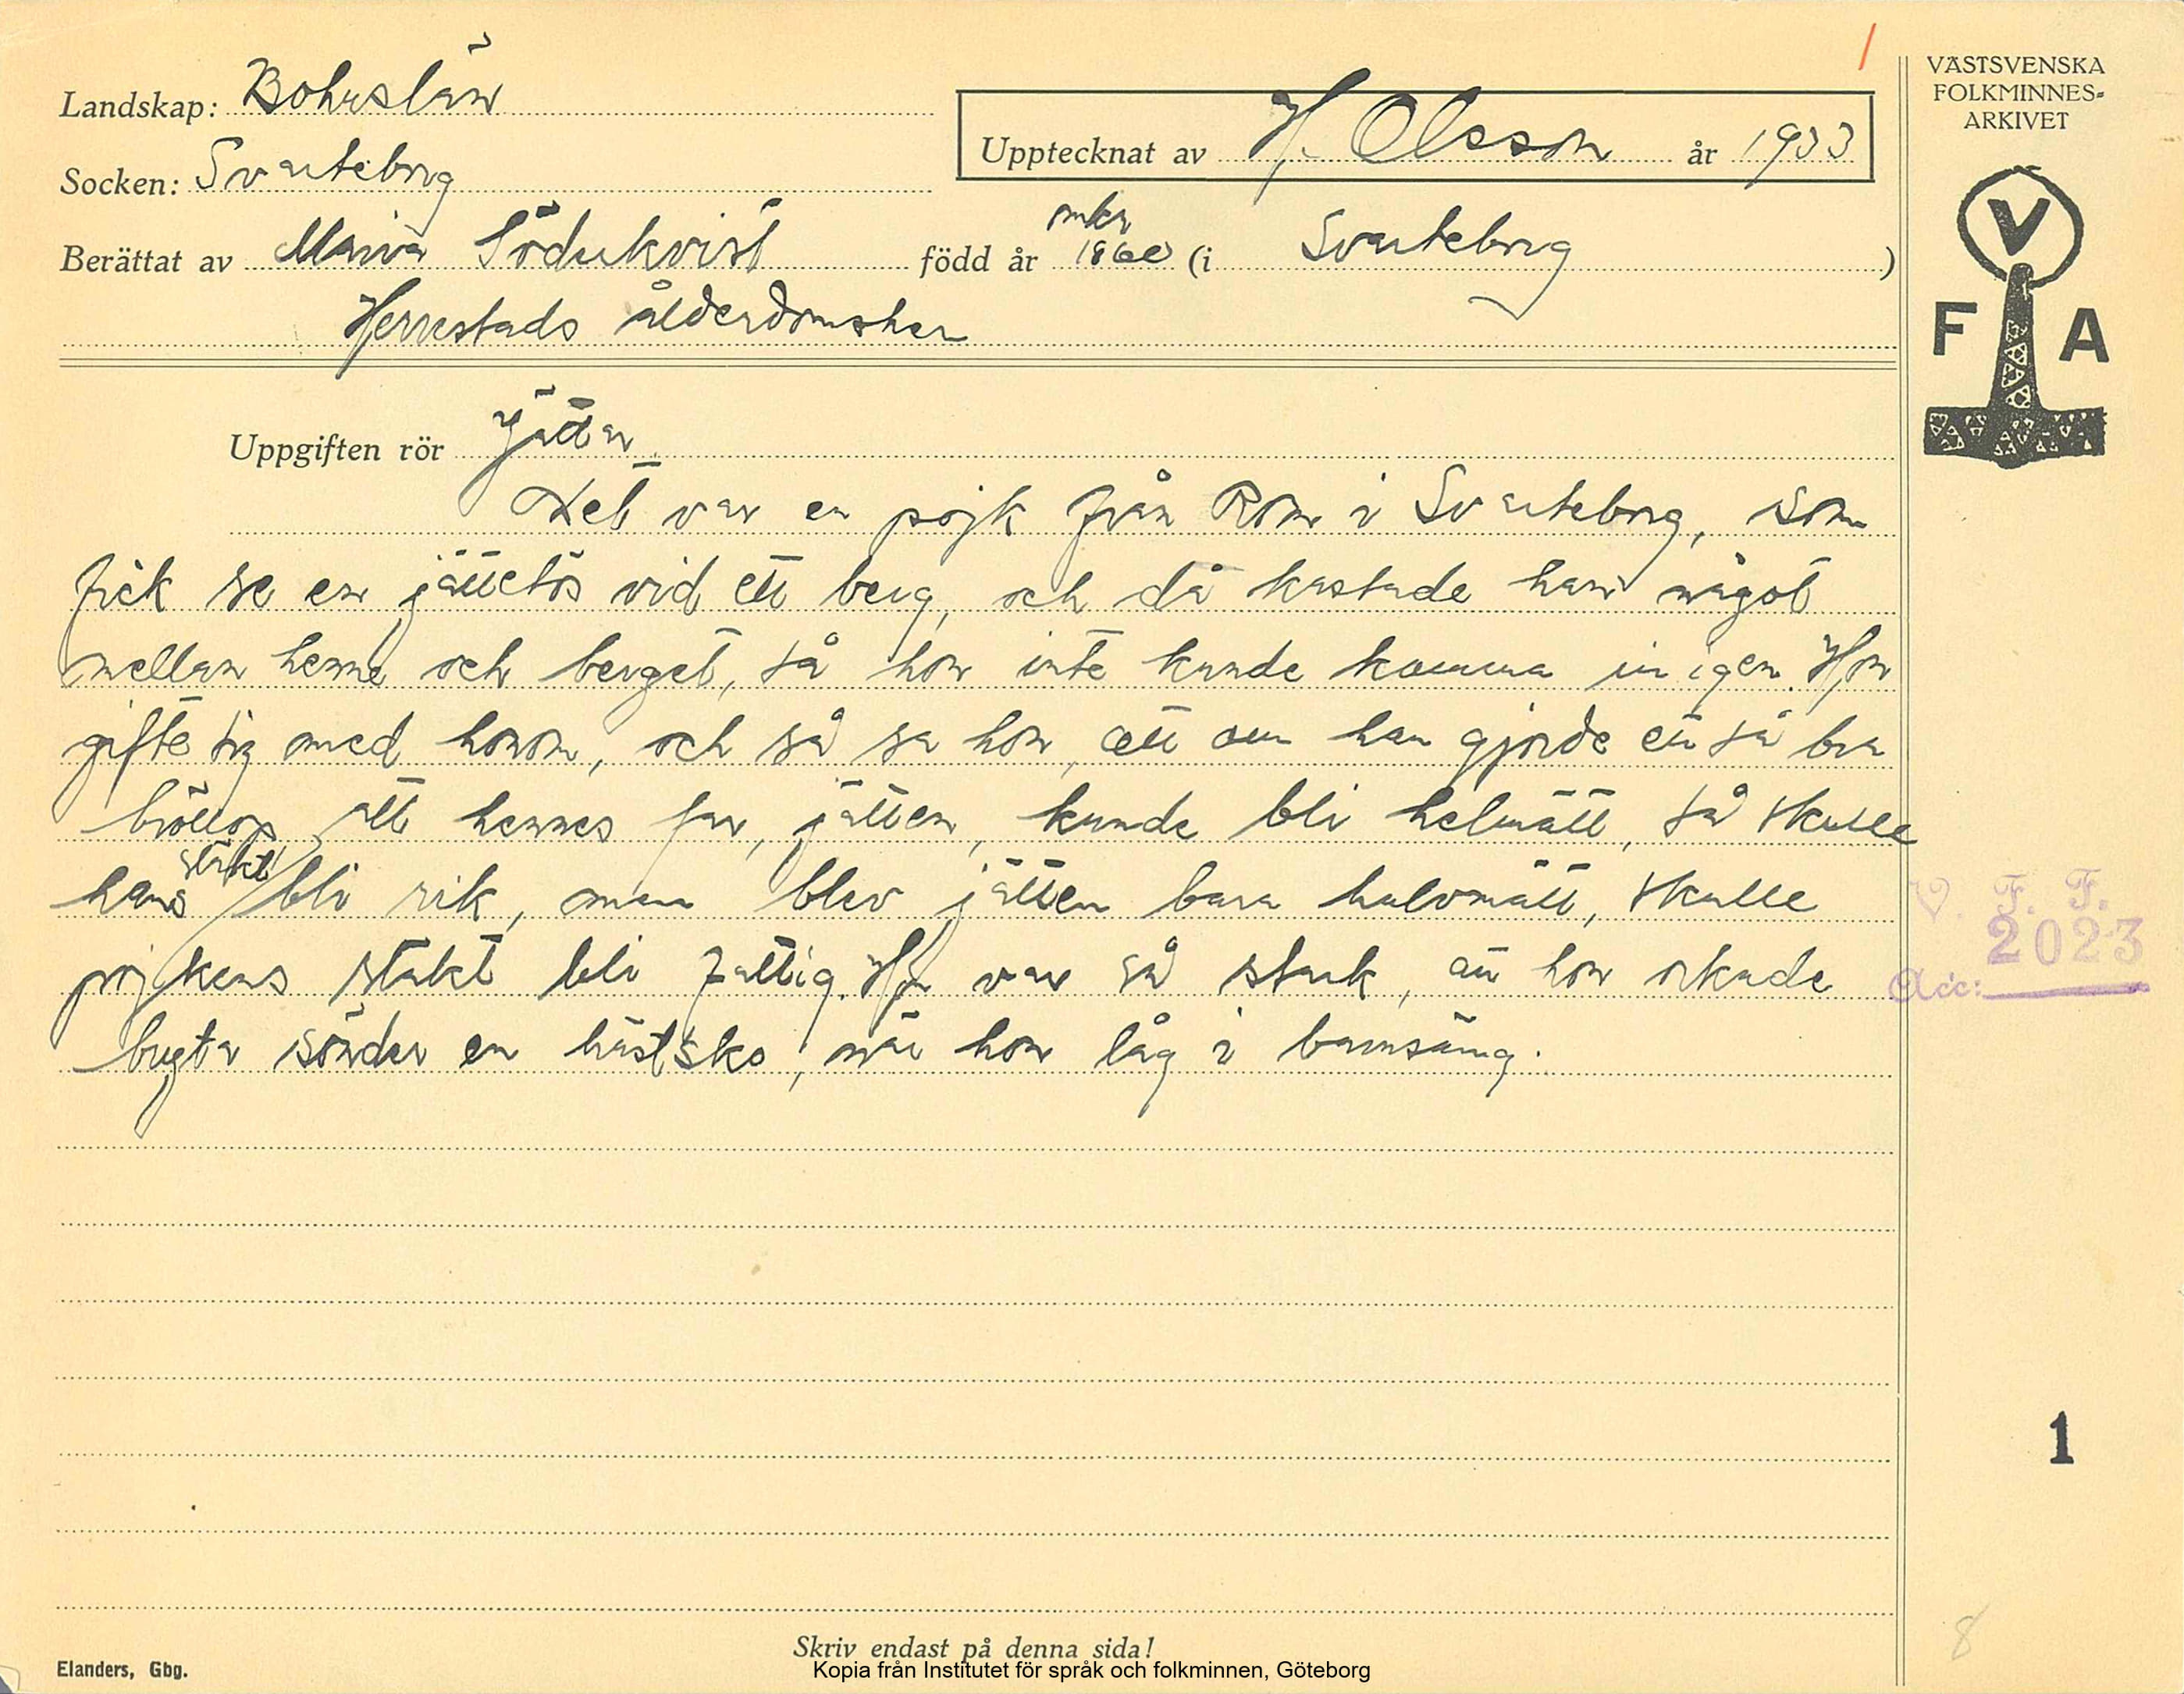 Landskap: Bohuslän
Socken: Svarteborg
Upptecknat av H. Olsson år 1933
Berättat av Maria Söderkvist född år omkr 1860 (i Svarteborg)
Herrestads ålderdomshem
VÄSTSVENSKA
FOLKMINNES-
ARKIVET
V
F A
Uppgiften rör Jättar
Det var en pojk från Rom i Svarteborg, som
fick se en jättetös vid ett berg, och då kastade han något
mellan henne och berget, så hon inte kunde komma in igen. Hon
gifte sig med honom, och så sa hon, att om han gjorde ett så bra
bröllop att hennes far, jätten, kunde bli helmätt, så skulle
hans släkt bli rik, men blev jätten bara halvmätt, skulle
pojkens släkt bli fattig. Hon var så stark, att hon orkade
bryta sönder en hästsko, när hon låg i barnsäng.
V. F. F.
Acc: 2023
1
8
Skriv endast på denna sida!
Elanders, Gbg.
Kopia från Institutet för språk och folkminnen, Göteborg